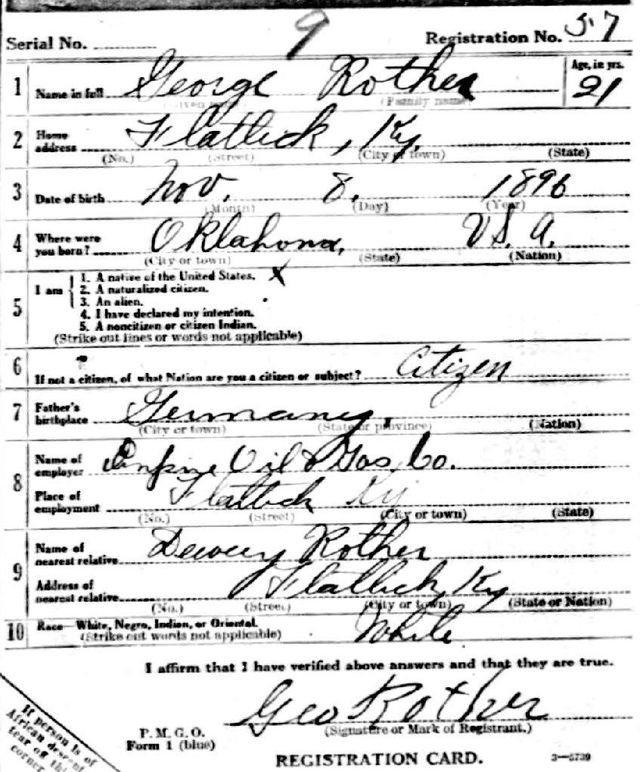 Serial No. 9 Registration No. 57
1 Name in full George Rother Age, in yrs. 21
(Given name) (Family name)
2 Home address Flatlick, Ky.
(No.) (Street) (City or town) (State)
3 Date of birth Nov. 8. 1896
(Month) (Day) (Year)
4 Where were you born? Oklahoma, U.S.A.
(City or town) (State) (Nation)
5 I am
1. A native of the United States. X
2. A naturalized citizen.
3. An alien.
4. I have declared my intention.
5. A noncitizen or citizen Indian.
(Strike out lines or words not applicable)
6 If not a citizen, of what Nation are you a citizen or subject? Citizen
7 Father's birthplace Germany,
(City or town) (State or province) (Nation)
8 Name of employer Oil & Gas Co.
Place of employment Flatlick Ky
(No.) (Street) (City or town) (State)
9 Name of nearest relative Dewey Rother
Address of nearest relative Flatlick, Ky
(No.) (Street) (City or town) (State or Nation)
10 Race—White, Negro, Indian, or Oriental. White
(Strike out words not applicable)
I affirm that I have verified above answers and that they are true.
Geo Rother
(Signature or Mark of Registrant.)
P. M. G. O.
Form 1 (blue)
REGISTRATION CARD. 3—5739
If person is of
African descent
tear off this
corner